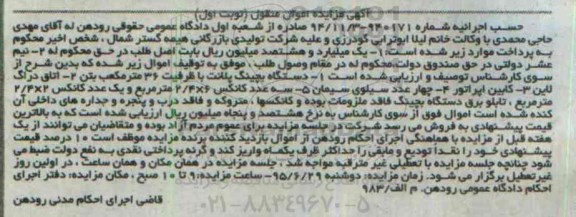 آگهی مزایده اموال منقول (نوبت اول)
حسب اجرائیه شماره ۹۴۰۱۷۱-۹۴/۱۱/۳ صادره از شعبه اول دادگاه عمومی حقوقی رودهن له آقای مهدی
حاجی محمدی با وکالت خانم لیلا ابوترابی گودرزی و علیه شرکت تولیدی بازرگانی هیمه گستر شمال، شخص اخیر محکوم
به پرداخت موارد زیر شده است: ۱- یک میلیارد و هشتصد میلیون ریال بابت اصل طلب در حق محکوم له ۲- نیم
عشر دولتی در حق صندوق دولت. محکوم له در مقام وصول طلب، موفق به توقیف اموال زیر شده که بدین شرح از
سوی کارشناس توصیف و ارزیابی شده است: ۱- دستگاه بچینگ پلانت با ظرفیت ۳۶ مترمکعب بتن ۲- اتاق دراگ
لاین ۳- کابین اپراتور ۴- چهار عدد سیلوی سیمان ۵- سه عدد کانکس ۲/۴×۶ مترمربع و یک عدد کانکس ۲/۴×۲
مترمربع، تابلو برق دستگاه بچینگ فاقد ملزومات بوده و کانکسها، متروکه و فاقد درب و پنجره و جداره های داخلی آن
کنده شده است اموال فوق از سوی کارشناس به نرخ هشتصد و پنجاه میلیون ریال ارزیابی شده است که به بالاترین
قیمت پیشنهادی به فروش می رسد شرکت در جلسه مزایده برای عموم مردم آزاد بوده و متقاضیان می توانند از یک
هفته قبل از مزایده با هماهنگی اجرای احکام رودهن از اموال بازدید کنند برنده مزایده موظف است ۱۰ درصد قیمت
پیشنهادی خود را نقداً تودیع و مابقی را حداکثر ظرف یکماه واریز کند و گرنه پرداختی نقدی به نفع دولت ضبط می
شود چنانچه جلسه مزایده با تعطیلی غیر مترقبه مواجه شد، جلسه مزایده در همان مکان و همان ساعت، در اولین روز
غیرتعطیل برگزار می شود. زمان مزایده: دوشنبه ۹۵/۶/۲۹- ساعت مزایده: ۹ تا ۱۰ صبح، مکان مزایده: دفتر اجرای
احکام دادگاه عمومی رودهن. م الف/۹۸۳
قاضی اجرای احکام مدنی رودهن
۰۲۱-۸۸۳۴۹۶۷۰-۵